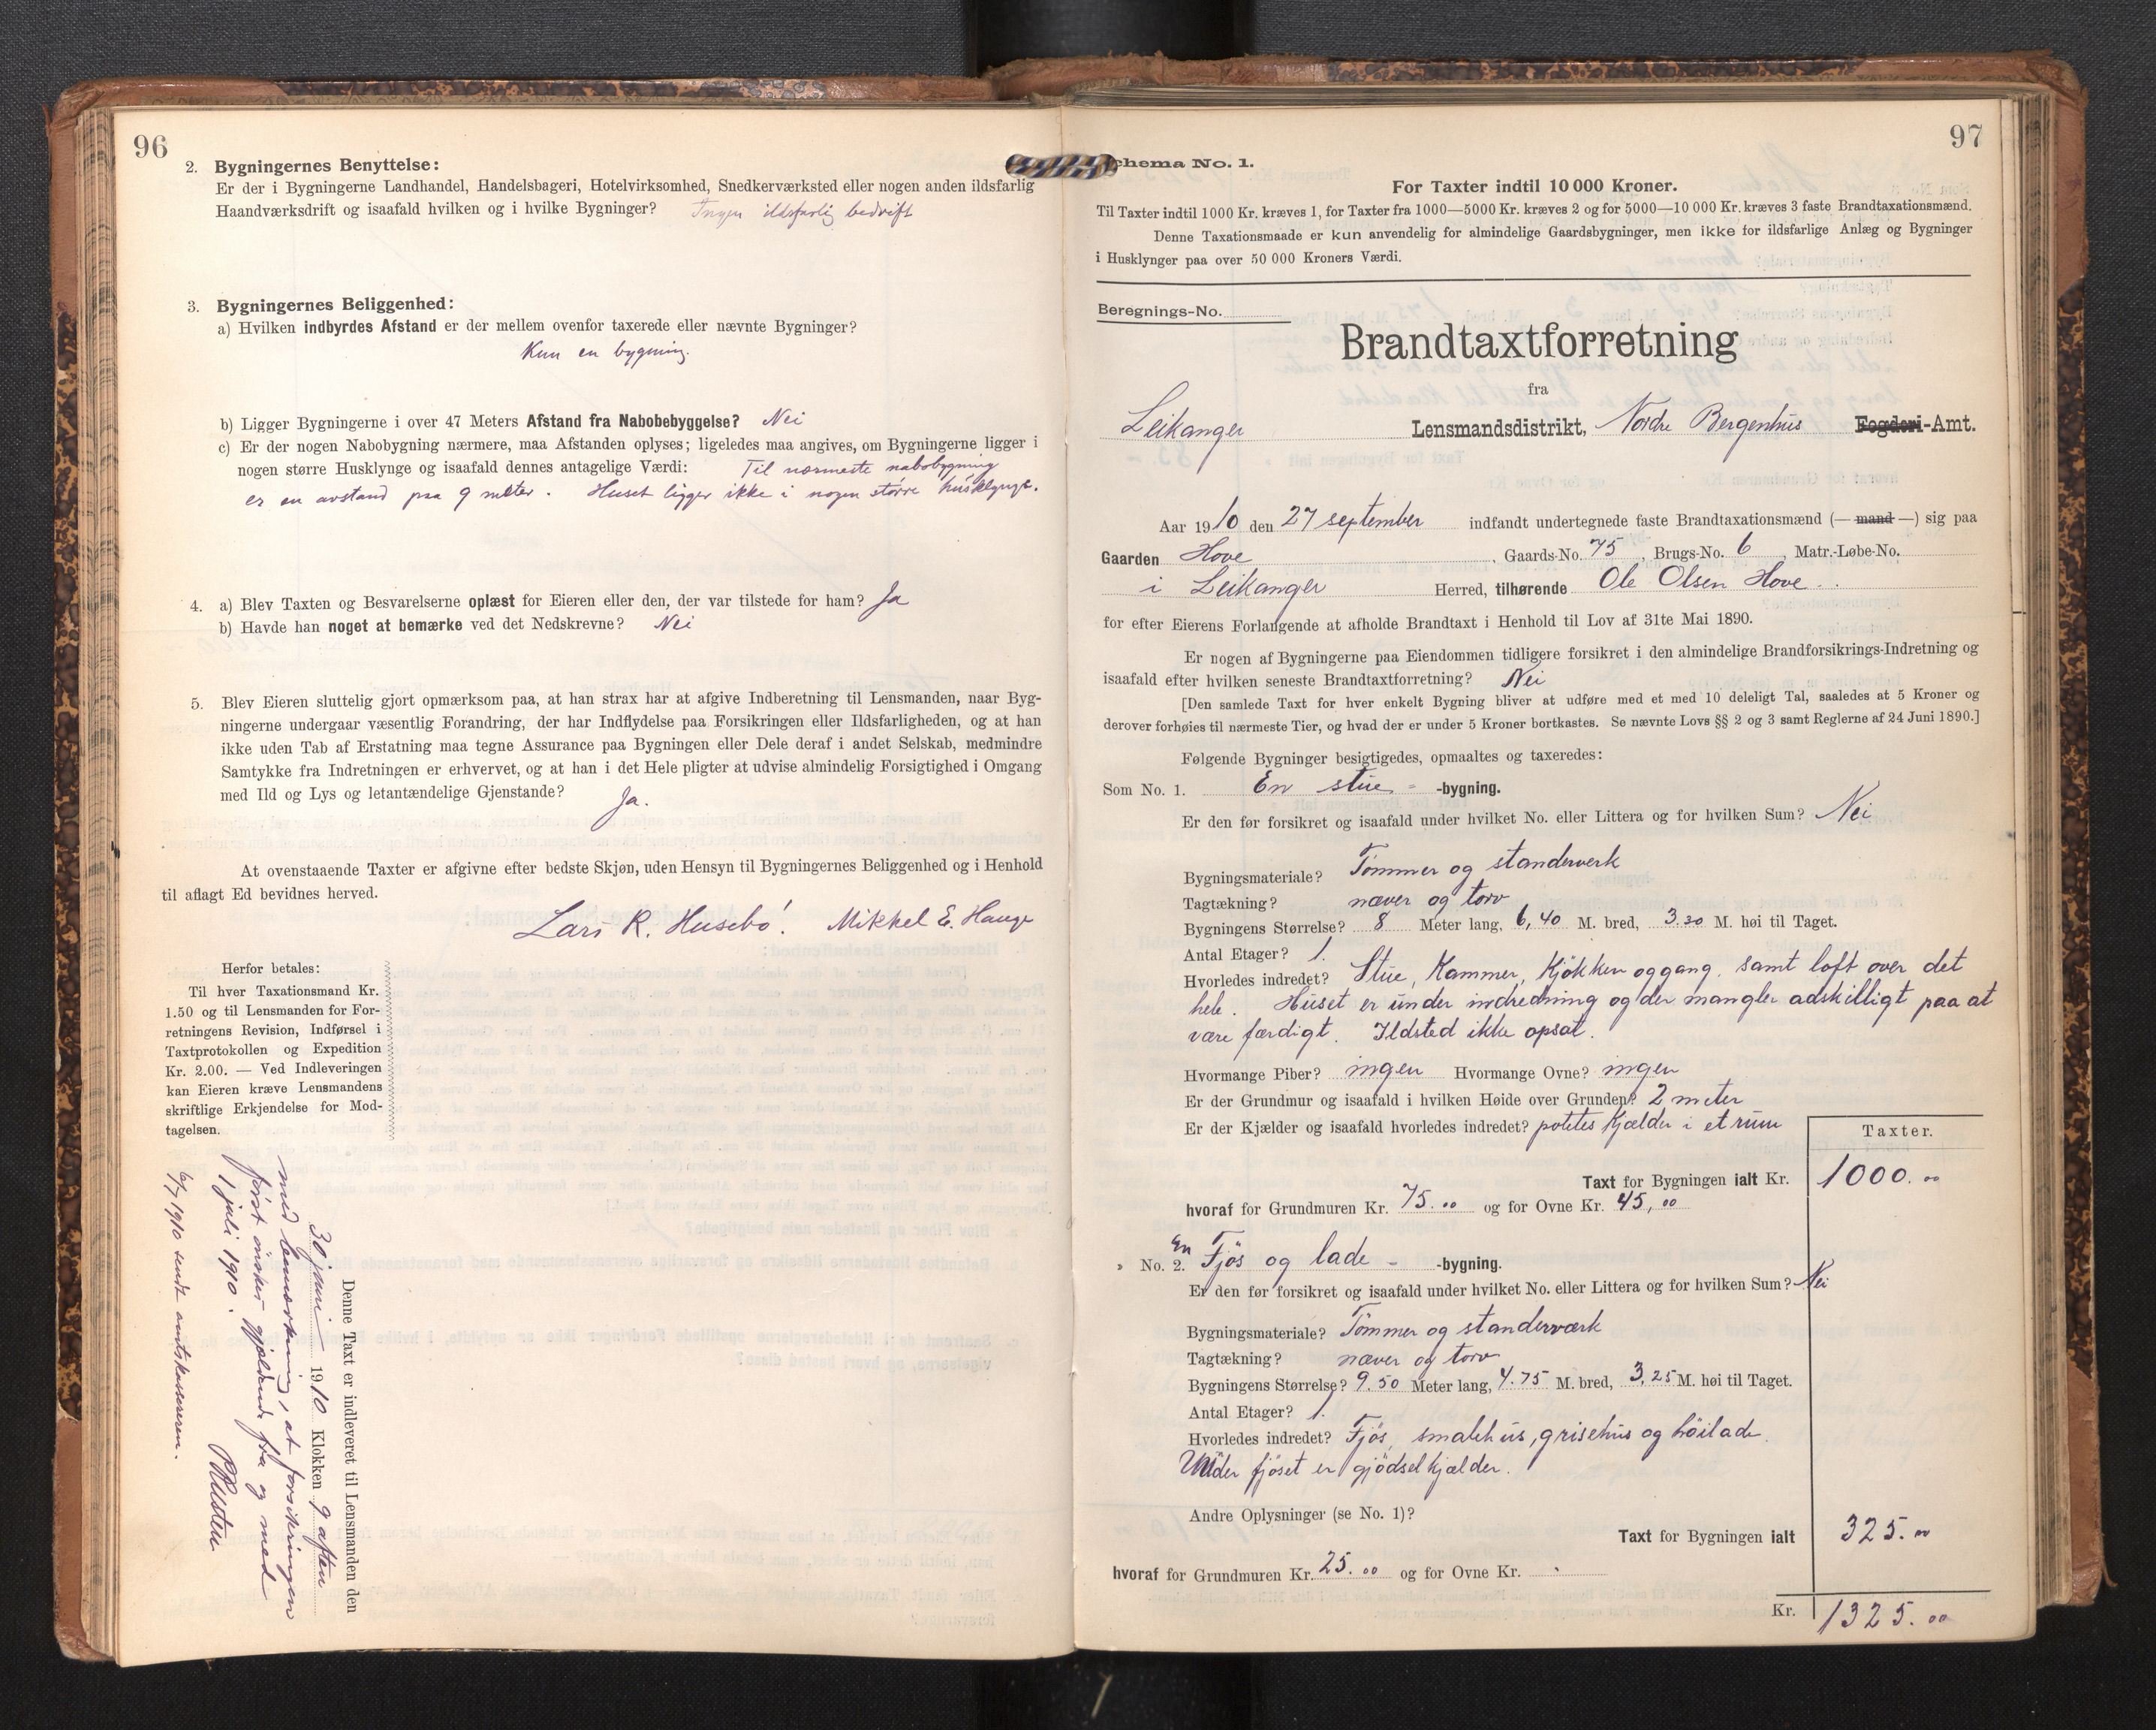 96
2. Bygningernes Benyttelse:
Er der i Bygningerne Landhandel, Handelsbageri, Hotelvirksomhed, Snedkerværksted eller nogen anden ildsfarlig
Haandværksdrift og isaafald hvilken og i hvilke Bygninger? Ingen ildsfarlig bedrift
3. Bygningernes Beliggenhed:
a) Hvilken indbyrdes Afstand er der mellem ovenfor taxerede eller nævnte Bygninger?
Kun en bygning.
b) Ligger Bygningerne i over 47 Meters Afstand fra Nabobebyggelse? Nei
c) Er der nogen Nabobygning nærmere, maa Afstanden oplyses; ligeledes maa angives, om Bygningerne ligger i
nogen større Husklynge og isaafald dennes antagelige Værdi: Til nærmeste nabobygning
er en avstand paa 9 meter. Huset ligger ikke i nogen større husklynge.
4. a) Blev Taxten og Besvarelserne oplæst for Eieren eller den, der var tilstede for ham? Ja
b) Havde han noget at bemærke ved det Nedskrevne? Nei
5. Blev Eieren sluttelig gjort opmærksom paa, at han strax har at afgive Indberetning til Lensmanden, naar Byg-
ningerne undergaar væsentlig Forandring, der har Indflydelse paa Forsikringen eller Ildsfarligheden, og at han
ikke uden Tab af Erstatning maa tegne Assurance paa Bygningen eller Dele deraf i andet Selskab, medmindre
Samtykke fra Indretningen er erhvervet, og at han i det Hele pligter at udvise almindelig Forsigtighed i Omgang
med Ild og Lys og letantændelige Gjenstande? Ja.
At ovenstaaende Taxter er afgivne efter bedste Skjøn, uden Hensyn til Bygningernes Beliggenhed og i Henhold
til aflagt Ed bevidnes herved.
Lars R. Husebø! Mikkel E. Hauge
Herfor betales:
Til hver Taxationsmand Kr.
1.50 og til Lensmanden for For-
retningens Revision, Indførsel i
Taxtprotokollen og Expedition
Kr. 2.00. — Ved Indleveringen
kan Eieren kræve Lensmandens
skriftlige Erkjendelse for Mod-
tagelsen.
Denne Taxt er indleveret til Lensmanden den
30 juni 1910 Klokken 9 aften
med bemærkning, at forsikringen
først ønskes gjældende fra og med
1 juli 1910.
6/7 1910 sendt amtskassereren.
97
chema No. 1.
For Taxter indtil 10 000 Kroner.
Til Taxter indtil 1000 Kr. kræves 1, for Taxter fra 1000—5000 Kr. kræves 2 og for 5000—10 000 Kr. kræves 3 faste Brandtaxationsmænd.
Denne Taxationsmaade er kun anvendelig for almindelige Gaardsbygninger, men ikke for ildsfarlige Anlæg og Bygninger
i Husklynger paa over 50 000 Kroners Værdi.
Beregnings-No.
Brandtaxtforretning
fra
Leikanger Lensmandsdistrikt, Nordre Bergenhus Fogderi-Amt.
Aar 1910 den 27 september indfandt undertegnede faste Brandtaxationsmænd (— mand —) sig paa
Gaarden Hove, Gaards-No. 75, Brugs-No. 6, Matr.-Løbe-No.
i Leikanger Herred, tilhørende Ole Olsen Hove.
for efter Eierens Forlangende at afholde Brandtaxt i Henhold til Lov af 31te Mai 1890.
Er nogen af Bygningerne paa Eiendommen tidligere forsikret i den almindelige Brandforsikrings-Indretning og
isaafald efter hvilken seneste Brandtaxtforretning? Nei
[Den samlede Taxt for hver enkelt Bygning bliver at udføre med et med 10 deleligt Tal, saaledes at 5 Kroner og
derover forhøies til nærmeste Tier, og hvad der er under 5 Kroner bortkastes. Se nævnte Lovs §§ 2 og 3 samt Reglerne af 24 Juni 1890.]
Følgende Bygninger besigtigedes, opmaaltes og taxeredes:
Som No. 1. En stue- -bygning.
Er den før forsikret og isaafald under hvilket No. eller Littera og for hvilken Sum? Nei
Bygningsmateriale? Tømmer og standerverk
Tagtækning? næver og torv
Bygningens Størrelse? 8 Meter lang, 6,40 M. bred, 3.20 M. høi til Taget.
Antal Etager? 1.
Hvorledes indredet? Stue, Kammer, Kjøkken og gang. samt loft over det
hele. Huset er under indredning og der mangler adskilligt paa at
være færdigt. Ildsted ikke opsat.
Hvormange Piber? ingen Hvormange Ovne? ingen
Er der Grundmur og isaafald i hvilken Høide over Grunden? 2 meter
Er der Kjælder og isaafald hvorledes indredet? potetes kjælder i et rum
Taxter.
Taxt for Bygningen ialt Kr. 1000.00
hvoraf for Grundmuren Kr. 75.00 og for Ovne Kr. 45,00
" No. 2. En Fjøs og lade- -bygning.
Er den før forsikret og isaafald under hvilket No. eller Littera og for hvilken Sum? Nei
Bygningsmateriale? Tømmer og standerværk
Tagtækning? næver og torv
Bygningens Størrelse? 9.50 Meter lang, 4.75 M. bred, 3,25 M. høi til Taget.
Antal Etager? 1.
Hvorledes indredet? Fjøs, smalehus, grisehus og høilade.
Under fjøset er gjødselkjælder.
Andre Oplysninger (se No. 1)?
Taxt for Bygningen ialt 325.00
hvoraf for Grundmuren Kr. 25.00 og for Ovne Kr.
Kr. 1325.00